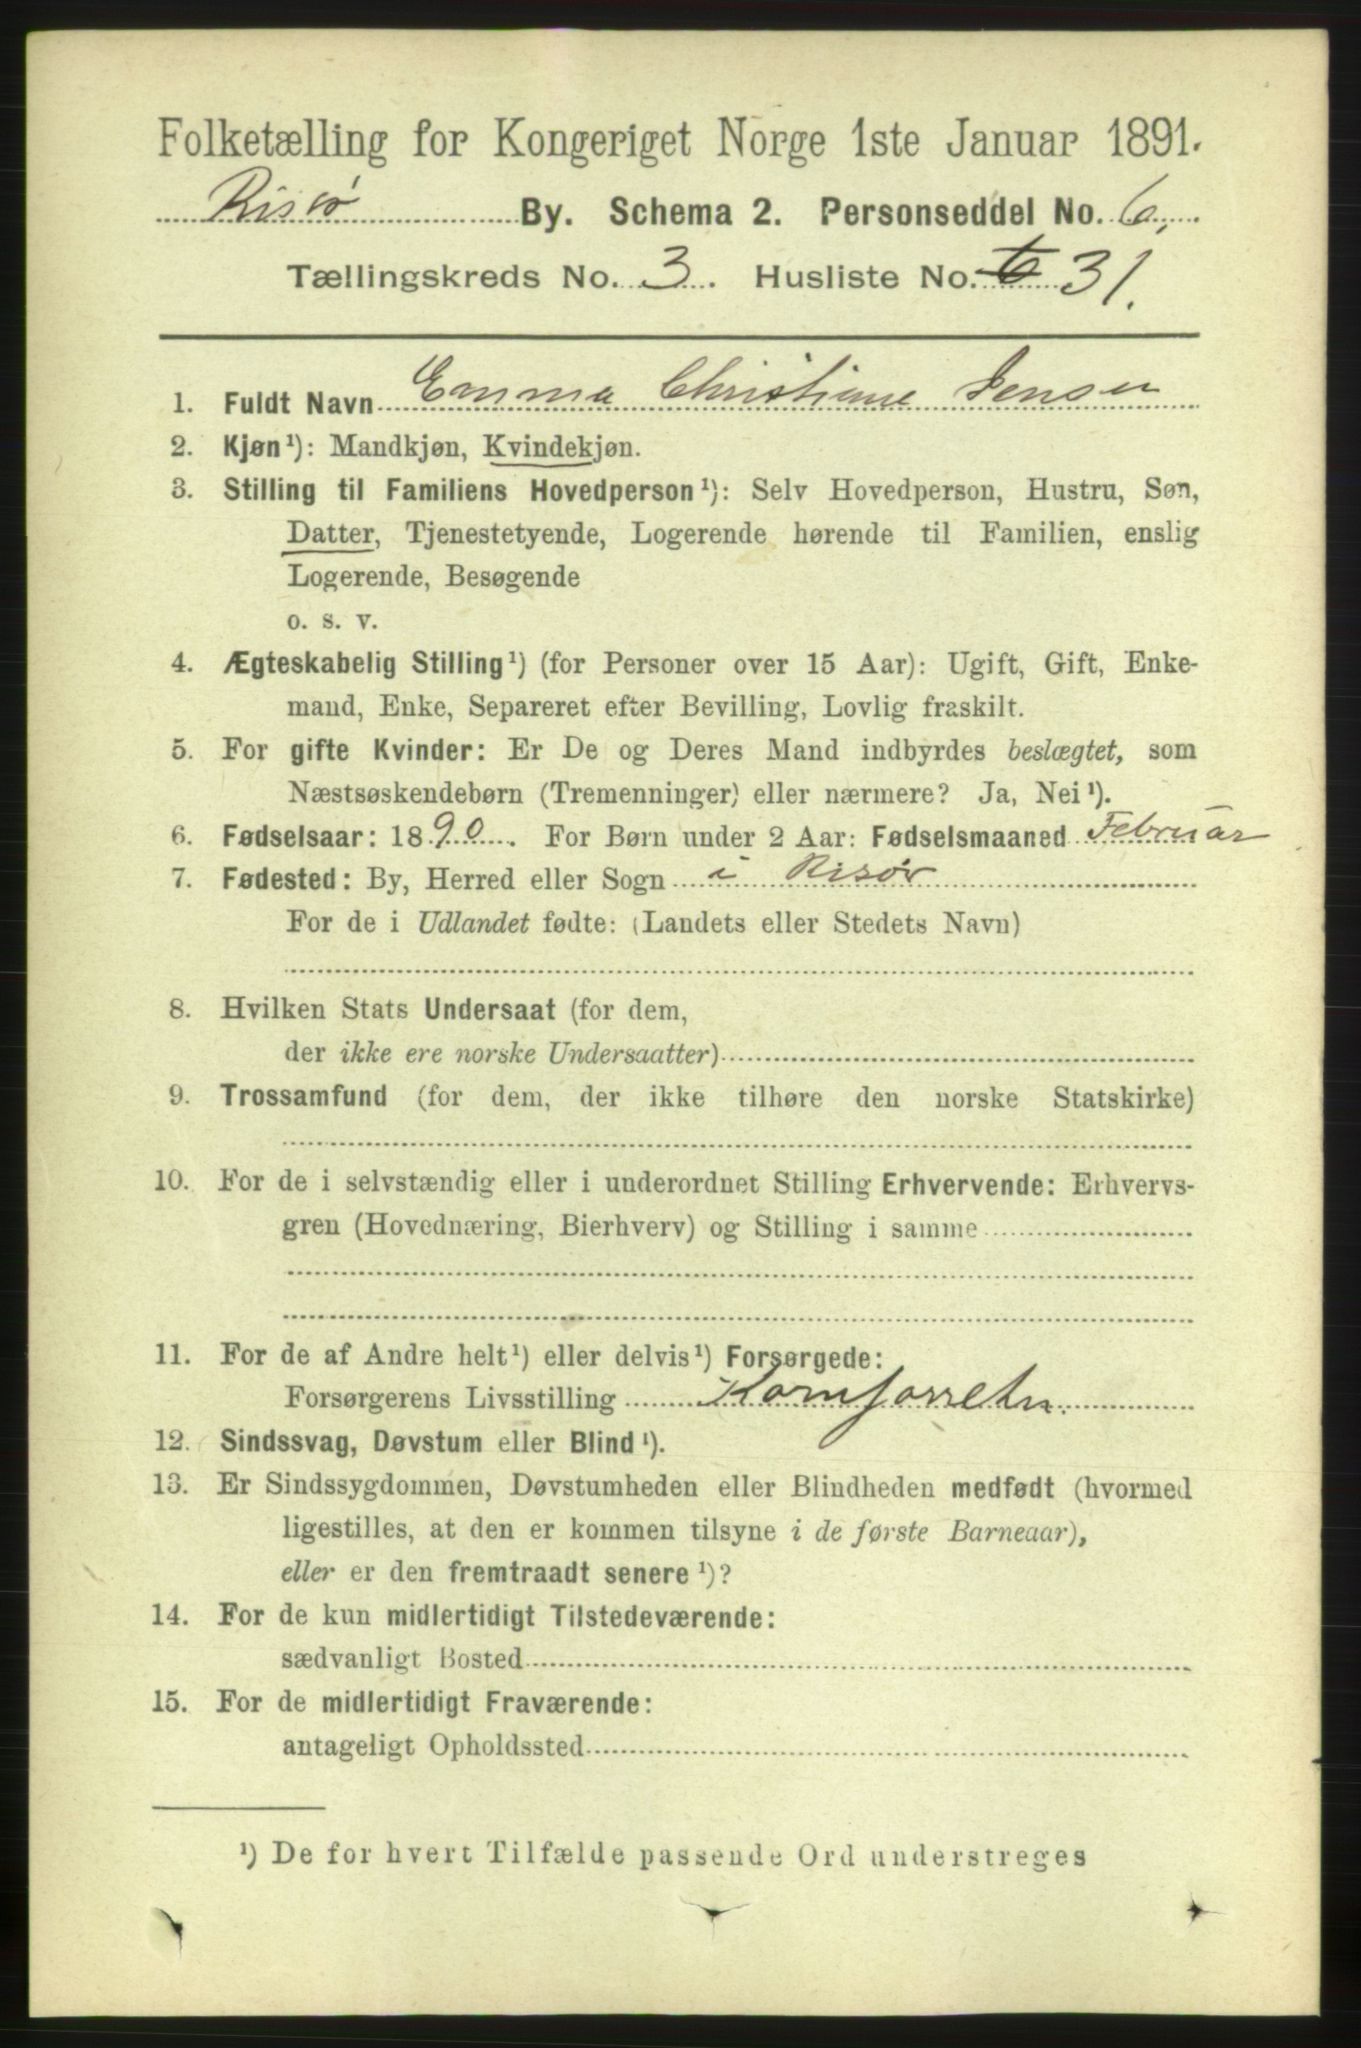 Folketælling for Kongeriget Norge 1ste Januar 1891.
Risør By. Schema 2. Personseddel No. 6,
Tællingskreds No. 3. Husliste No. 6 31.
1. Fuldt Navn Emma Christiane Jensen
2. Kjøn¹): Mandkjøn, Kvindekjøn.
3. Stilling til Familiens Hovedperson¹): Selv Hovedperson, Hustru, Søn,
Datter, Tjenestetyende, Logerende hørende til Familien, enslig
Logerende, Besøgende
o. s. v.
4. Ægteskabelig Stilling¹) (for Personer over 15 Aar): Ugift, Gift, Enke-
mand, Enke, Separeret efter Bevilling, Lovlig fraskilt.
5. For gifte Kvinder: Er De og Deres Mand indbyrdes beslægtet, som
Næstsøskendebørn (Tremenninger) eller nærmere? Ja, Nei¹).
6. Fødselsaar: 1890. For Børn under 2 Aar: Fødselsmaaned Februar
7. Fødested: By, Herred eller Sogn i Risør
For de i Udlandet fødte: (Landets eller Stedets Navn)
8. Hvilken Stats Undersaat (for dem,
der ikke ere norske Undersaatter)
9. Trossamfund (for dem, der ikke tilhøre den norske Statskirke)
10. For de i selvstændig eller i underordnet Stilling Erhvervende: Erhvervs-
gren (Hovednæring, Bierhverv) og Stilling i samme
11. For de af Andre helt¹) eller delvis¹) Forsørgede:
Forsørgerens Livsstilling
12. Sindssvag, Døvstum eller Blind¹).
13. Er Sindssygdommen, Døvstumheden eller Blindheden medfødt (hvormed
ligestilles, at den er kommen tilsyne i de første Barneaar),
eller er den fremtraadt senere¹)?
14. For de kun midlertidigt Tilstedeværende:
sædvanligt Bosted
15. For de midlertidigt Fraværende:
antageligt Opholdssted
¹) De for hvert Tilfælde passende Ord understreges